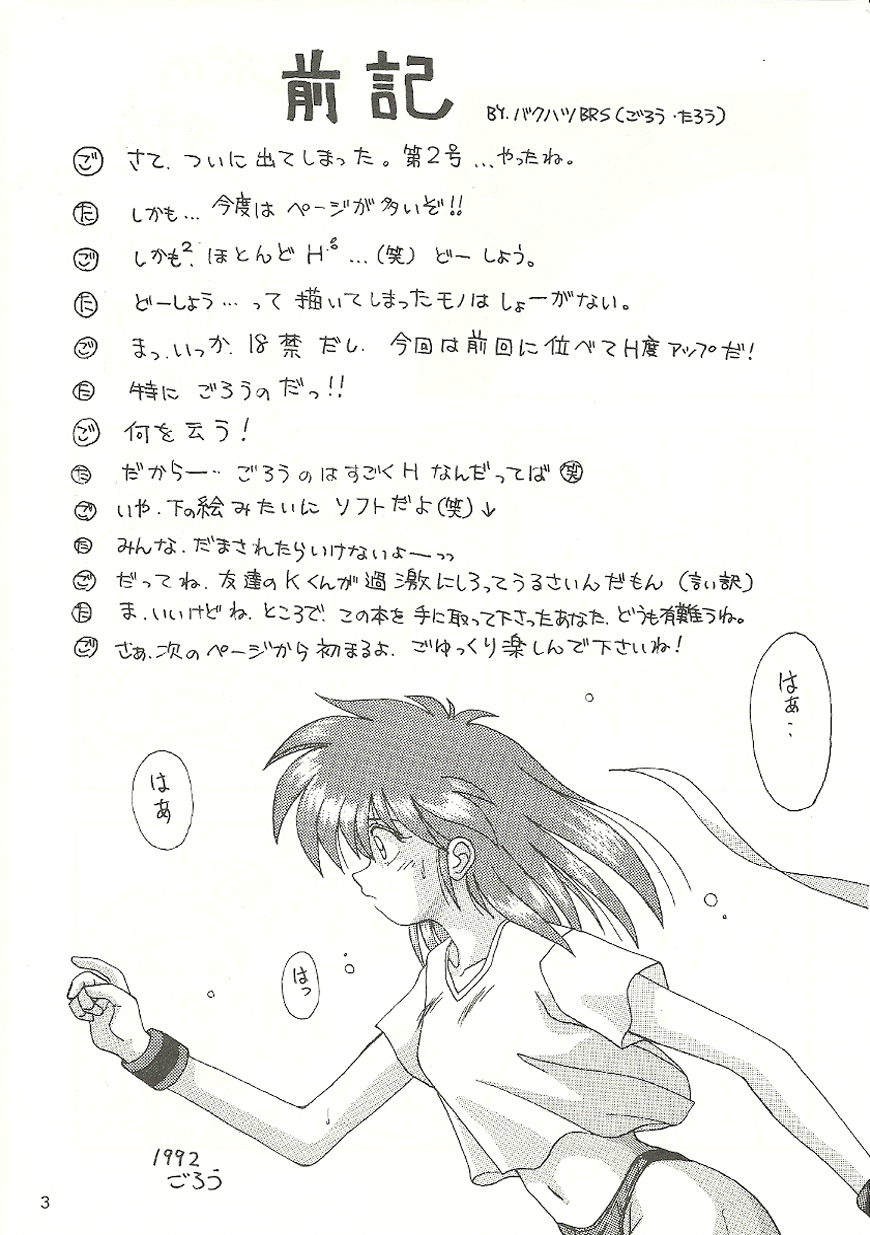 前記
BY.バクハツBRS(ごろう・たろう)
ご さて、ついに出てしまった。第2号…やったね。
た しかも…今度はページが多いぞ!!
ご しかも2、ほとんどH…(笑)どーしよう。
た どーしよう…って描いてしまったモノはしょーがない。
ご まっ、いっか、18禁だし、今回は前回に位べてH度アップだ!
た 特にごろうのだっ!!
ご 何を云う!
た だからー…ごろうのはすごくHなんだってば 笑
ご いや、下の絵みたいにソフトだよ(笑)↓
た みんな、だまされたらいけないよーっっ
ご だってね、友達のKくんが過激にしろってうるさいんだもん(言い訳)
た ま、いいけどね、ところで、この本を手に取って下さったあなた、どうも有難うね。
ご さぁ、次のページから初まるよ、ごゆっくり楽しんで下さいね!
はぁ…
はぁ
はっ
1992
ごろう
3